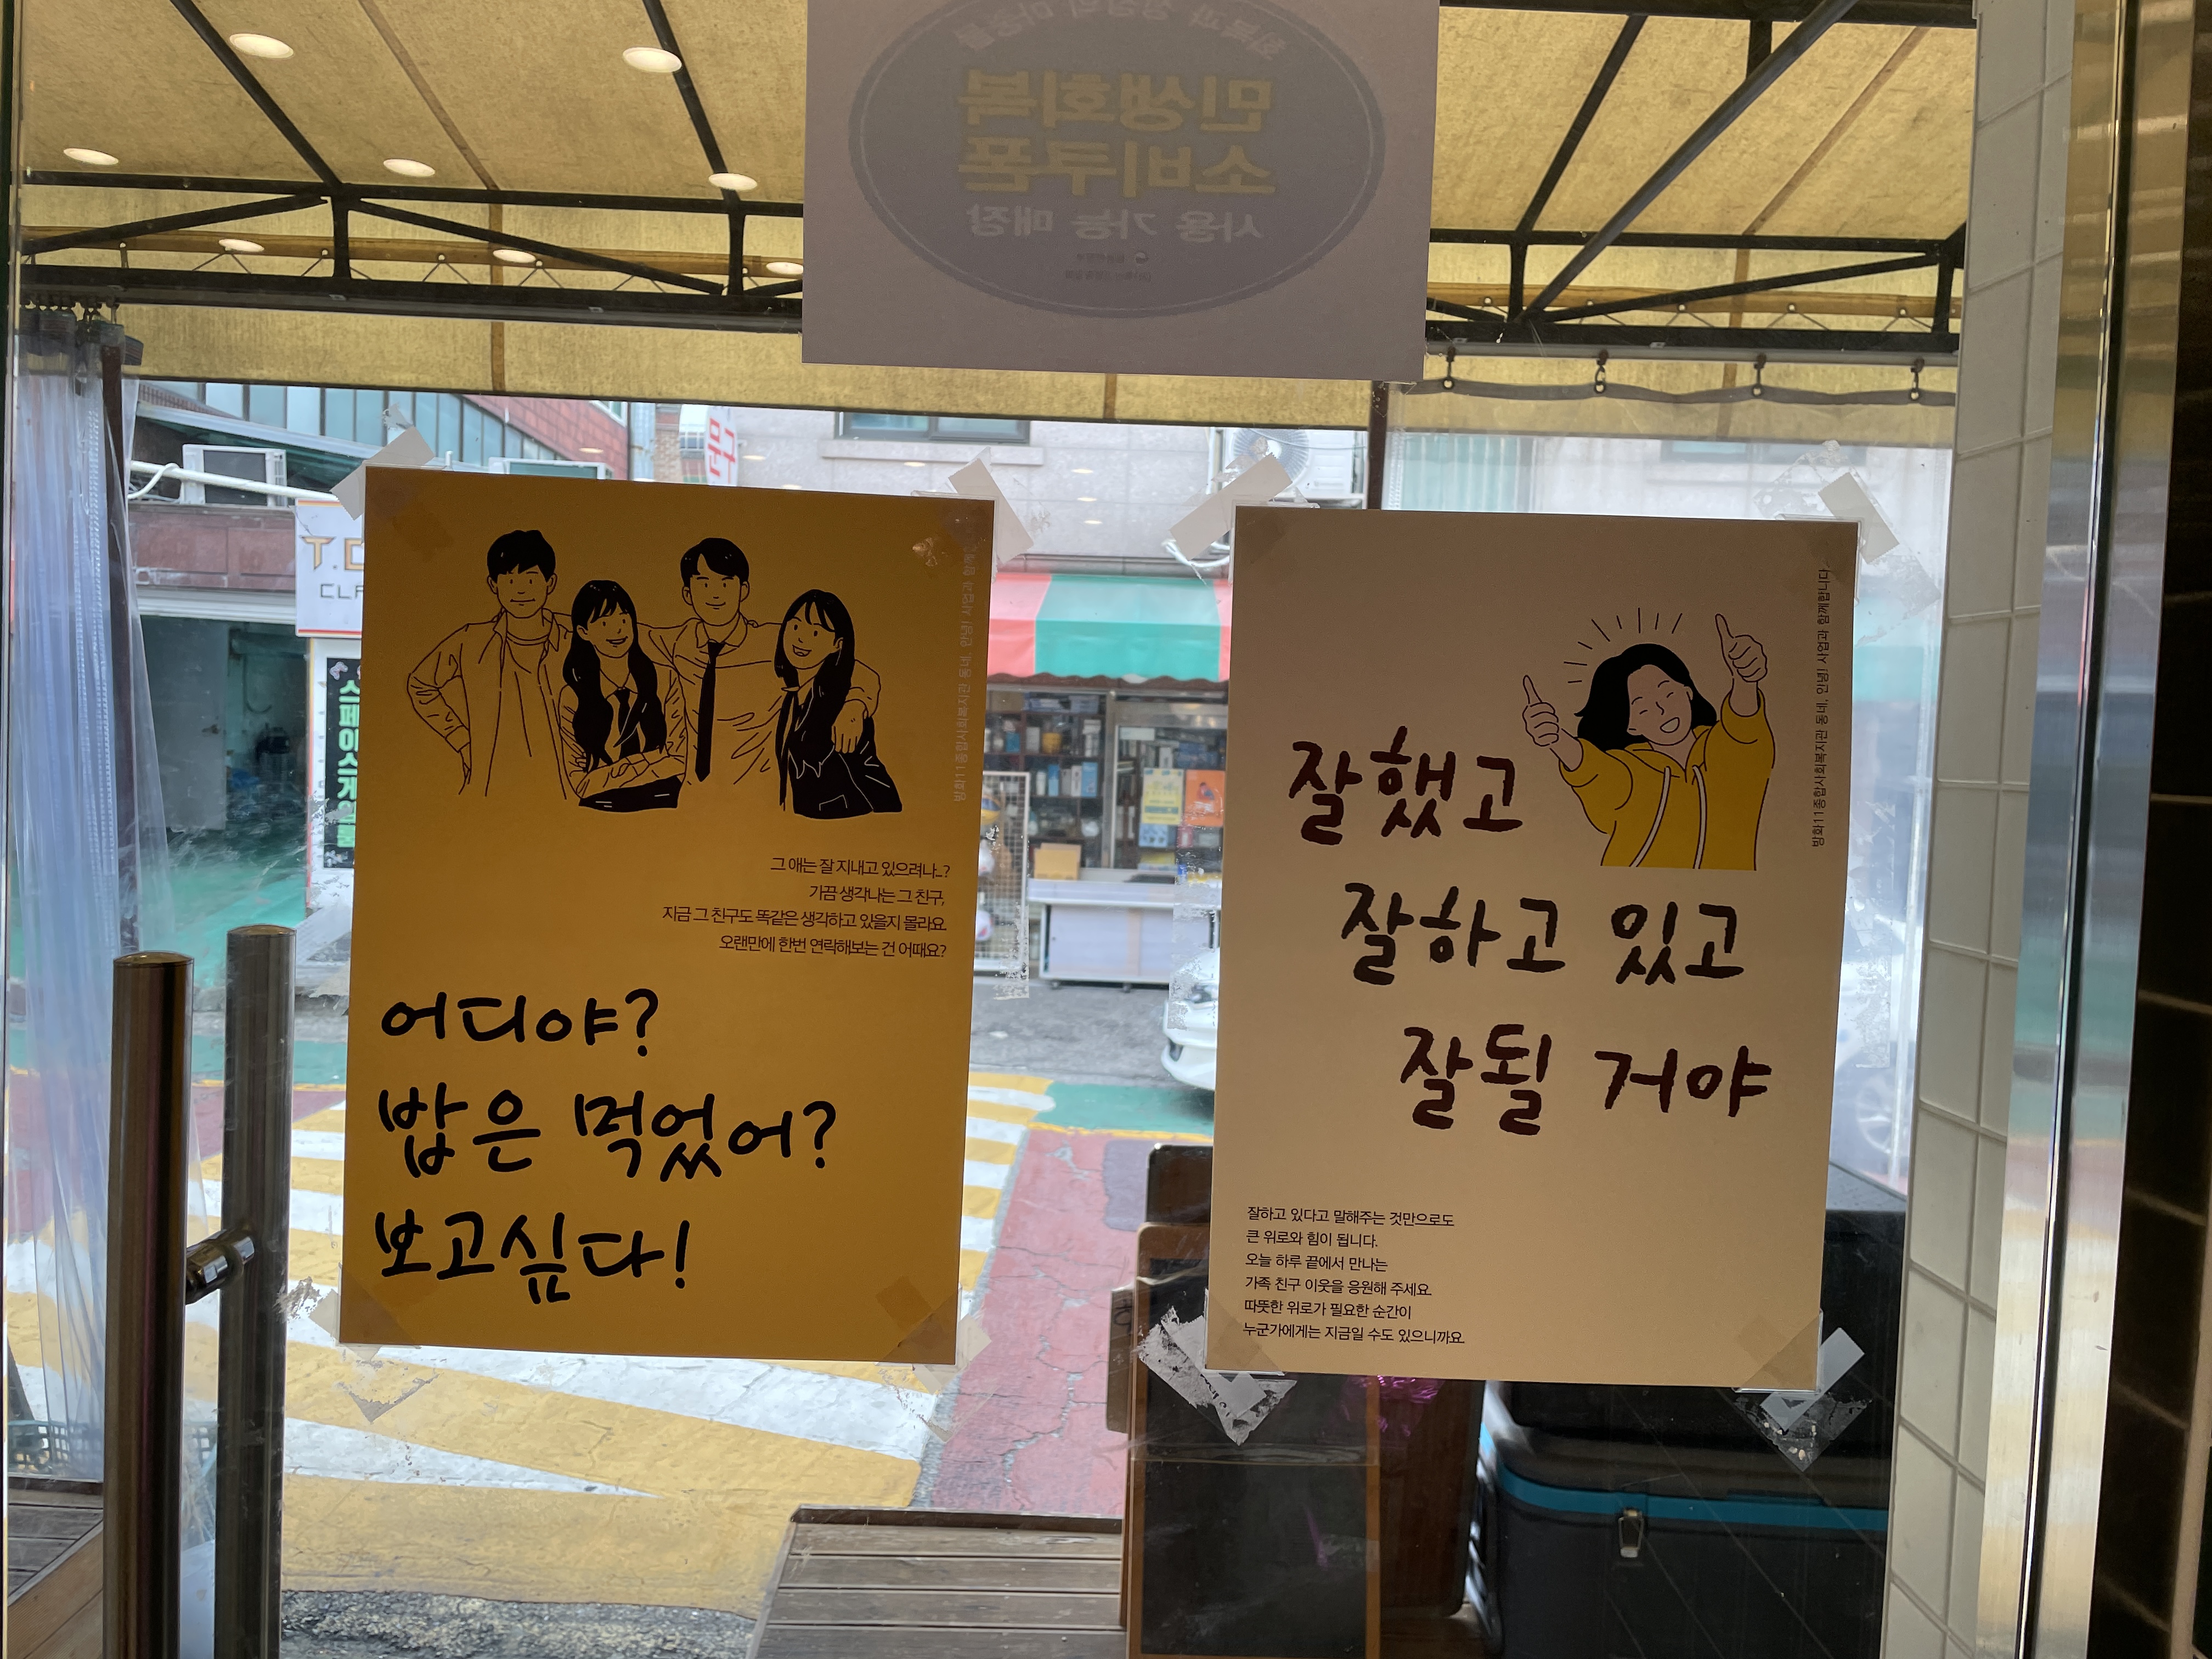 민생회복
소비쿠폰
사용 가능 매장
문구
스페이스게임
그 애는 잘 지내고 있으려나..?
가끔 생각나는 그 친구,
지금 그 친구도 똑같은 생각하고 있을지 몰라요.
오랜만에 한번 연락해보는 건 어때요?
어디야?
밥은 먹었어?
보고싶다!
방화11종합사회복지관 동네, 안녕! 사업과 함께
잘했고
잘하고 있고
잘될 거야
방화11종합사회복지관 동네, 안녕! 사업과 함께합니다.
잘하고 있다고 말해주는 것만으로도
큰 위로와 힘이 됩니다.
오늘 하루 끝에서 만나는
가족 친구 이웃을 응원해 주세요.
따뜻한 위로가 필요한 순간이
누군가에게는 지금일 수도 있으니까요.